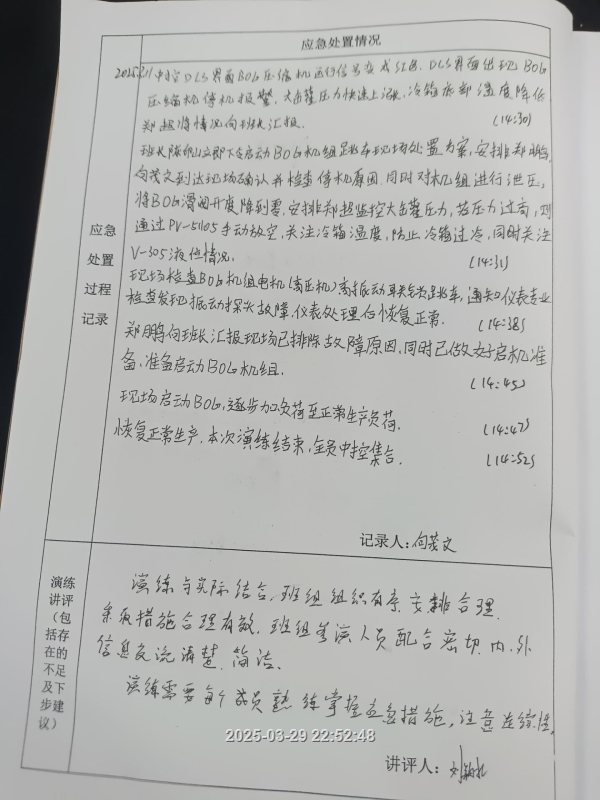 应急处置情况
中控DCS界面BOG压缩机运行信号变成红色，DCS界面出现BOG
压缩机停机报警，大古罐压力快速上涨，冷箱底部温度降低
郑超将情况向班长汇报。 (14:30)
班长陈帆山立即下令启动BOG机组跳车现场处置方案，安排郑鹏、
向茂文到达现场确认并检查停机原因，同时对机组进行泄压，
将BOG滑阀开度降到零，安排郑超监控大古罐压力，若压力过高，则
通过PV-51105手动放空，关注冷箱温度，防止冷箱过冷，同时关注
V-305液位情况。 (14:31)
现场检查BOG机组电机(高压机)高振动联锁跳车，通知仪表专业
检查发现振动探头故障，仪表处理后恢复正常。 (14:38)
郑鹏向班长汇报现场已排除故障原因，同时已做好启机准
备，准备启动BOG机组。 (14:45)
现场启动BOG，逐步加负荷至正常生产负荷。 (14:47)
恢复正常生产，本次演练结束，全员中控集合。 (14:52)
应急
处置
过程
记录
记录人：向茂文
演练
讲评
（包
括存
在的
不足
及下
步建
议）
演练与实际结合，班组组织有序安排合理
采取措施合理有效，班组参演人员配合密切，内、外
信息交流清楚、简洁。
演练需要每个成员熟练掌握应急措施，注意连续性。
2025-03-29 22:52:48
讲评人：